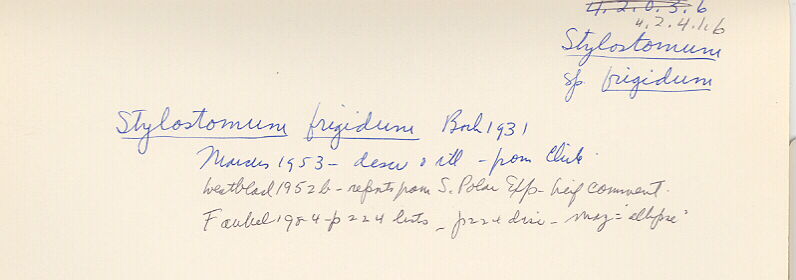 4.2.0.3.6
4.2.4.1.6
Stylostomum
sp. frigidum
Stylostomum frigidum Bock 1931
Marcus 1953 - descr & ill - from Chile
Westblad 1952b - reports from S. Polar Exp - brief comment.
Faubel 1984 - p 224 lists - p224 disc - may = "ellipse"